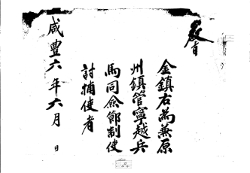 金鎭右爲兼原
州鎭管寧越兵
馬同僉節制使
討捕使者
咸豊六年六月 日